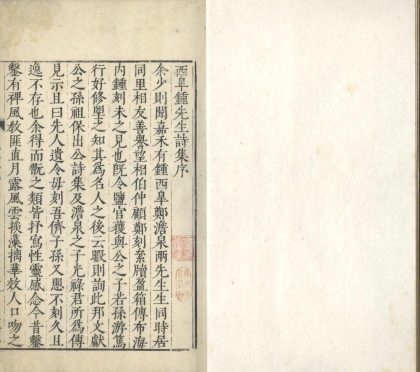 西皐鍾先生詩集序
余少則聞嘉禾有鍾西皐鄭澹泉兩先生生同時居
同里相友善譽望相伯仲顧鄭刻案牘盈箱傳布海
內鍾刻未之見也旣令鹽官獲與公之子若孫游篤
行好修望之知其爲名人之後云暇則詢此邦文獻
公之孫祖保出公詩集及澹泉之子光祿君所爲傳
見示且曰先人遺令毋刻吾儕子孫又思不刻久且
逸不存也余得而觀之類皆抒寫性靈感念今昔鑿
鑿有裨風敎匪直月露風雲掞藻摛華效人口吻之